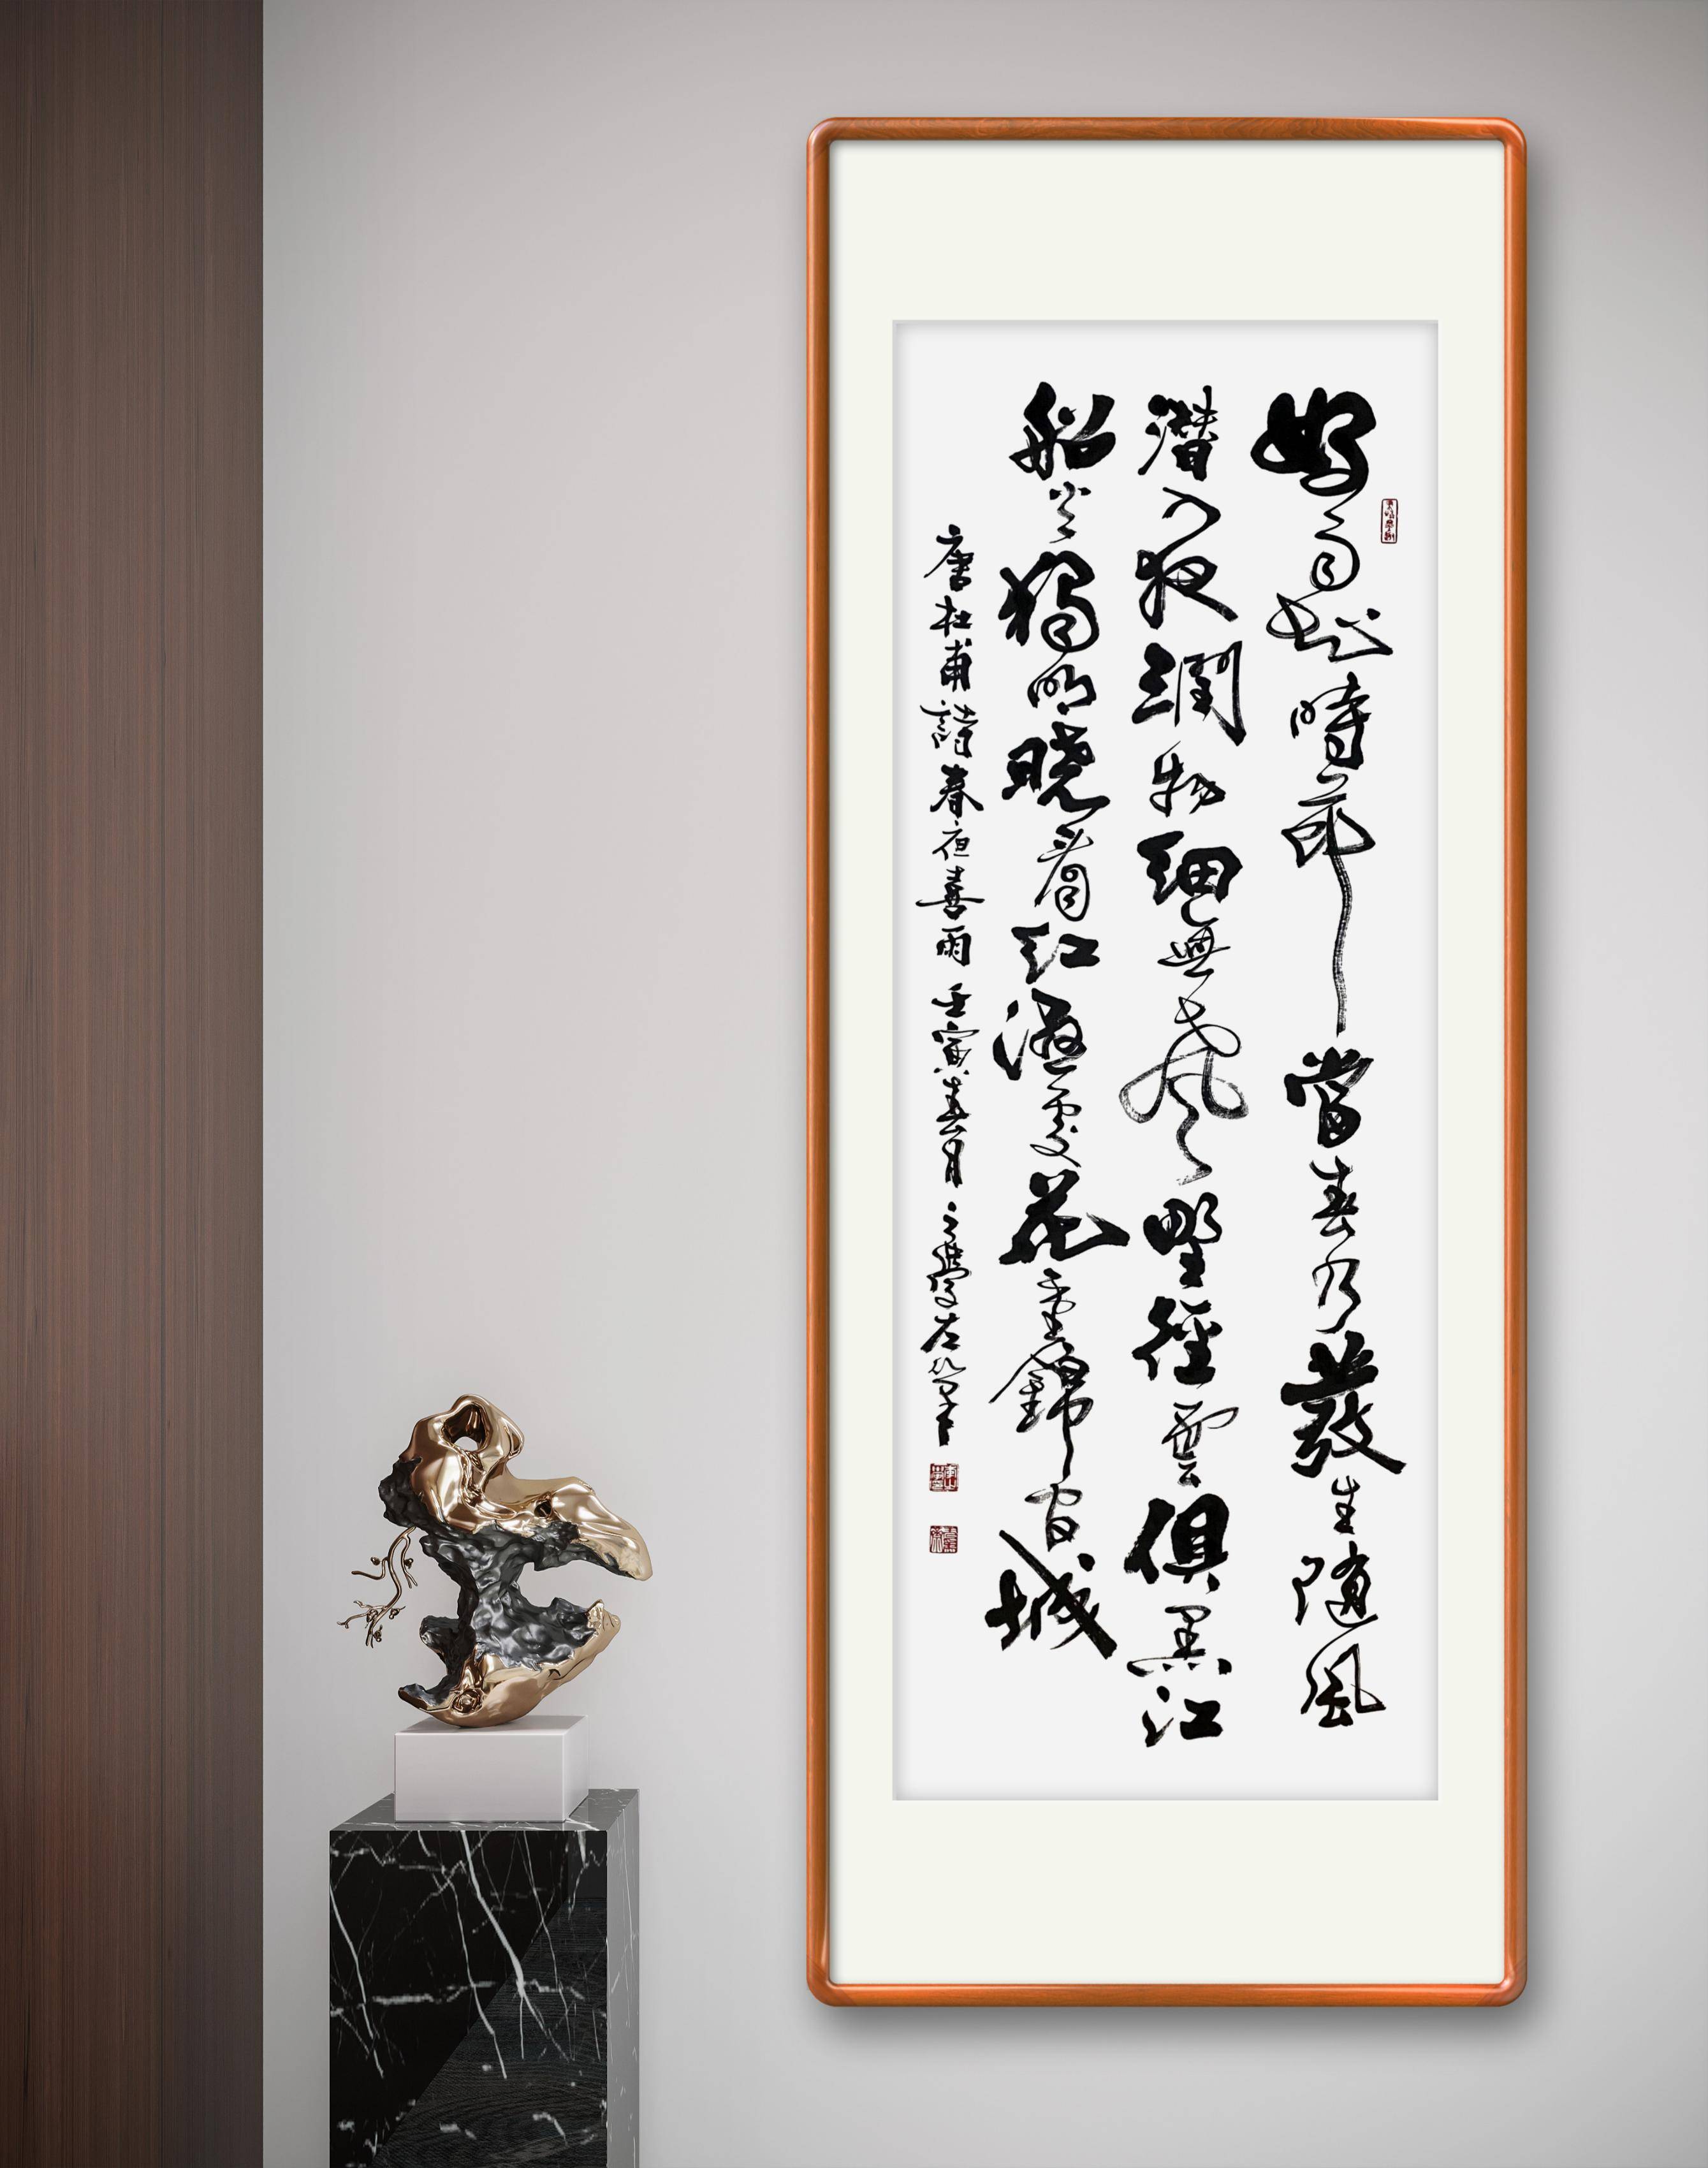 好雨知時節當春乃發生隨風
潛入夜潤物細無聲野徑雲俱黑江
船火獨明曉看紅濕處花重錦官城
唐杜甫詩春夜喜雨壬寅春月